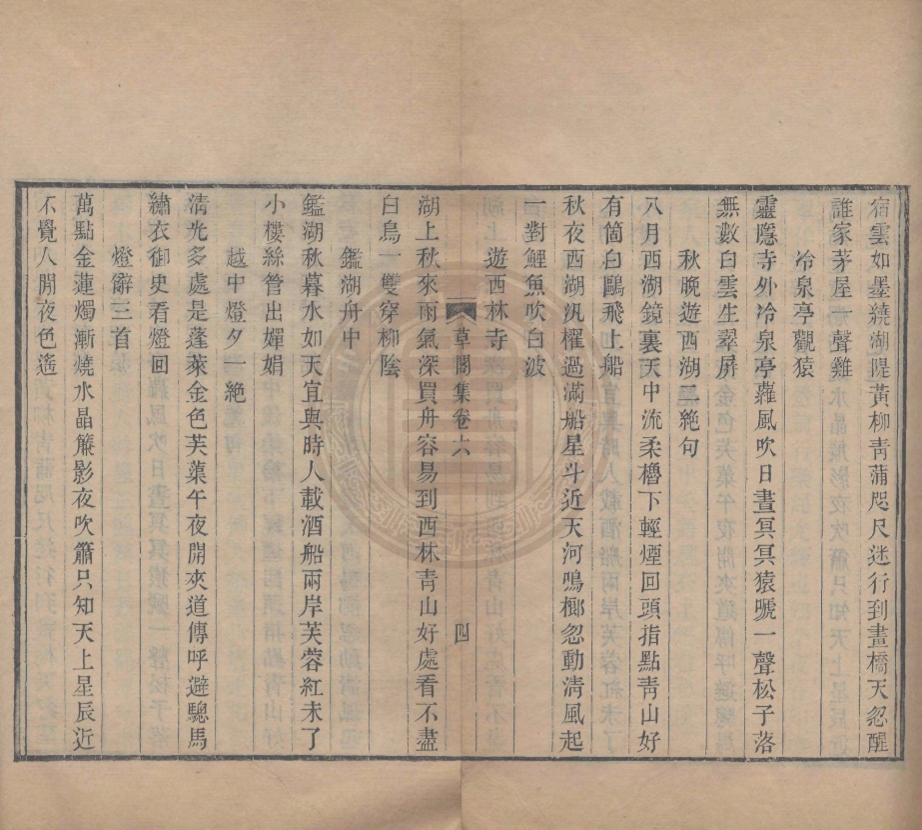 宿雲如墨繞湖隄黃柳青蒲咫尺迷行到畫橋天忽醒
誰家茅屋一聲雞
冷泉亭觀猿
靈隱寺外冷泉亭蘿風吹日晝冥冥猿號一聲松子落
無數白雲生翠屏
秋晚遊西湖三絶句
八月西湖鏡裏天中流柔櫓下輕煙回頭指點青山好
有箇白鷗飛上船
秋夜西湖汎櫂過滿船星斗近天河鳴榔忽動淸風起
一對鯉魚吹白波
遊西林寺
湖上秋來雨氣深買舟容易到西林青山好處看不盡
草閣集卷六
四
白鳥一雙穿柳陰
鑑湖舟中
鑑湖秋暮水如天宜與時人載酒船兩岸芙蓉紅未了
小樓絲管出嬋娟
越中燈夕一絶
清光多處是蓬萊金色芙蕖午夜開夾道傳呼避驄馬
繡衣御史看燈回
燈辭三首
萬點金蓮燭漸燒水晶簾影夜吹簫只知天上星辰近
不覺人閒夜色遙